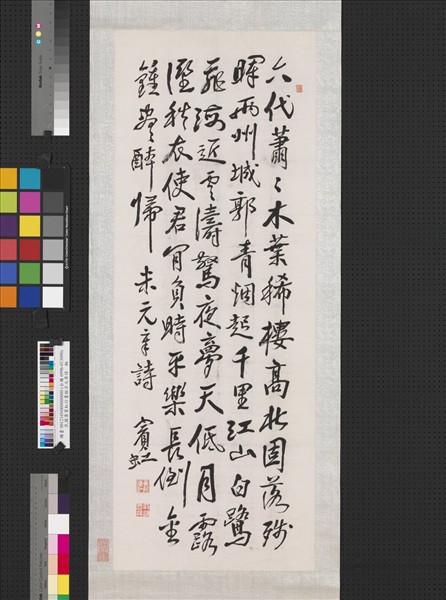 六代蕭〻木葉稀樓高北固落殘
暉兩州城郭青烟起千里江山白鷺
飛海近雲濤驚夜夢天低月露
溼秋衣使君肯負時平樂長倒金
鍾盡醉歸 米元章詩 賓虹